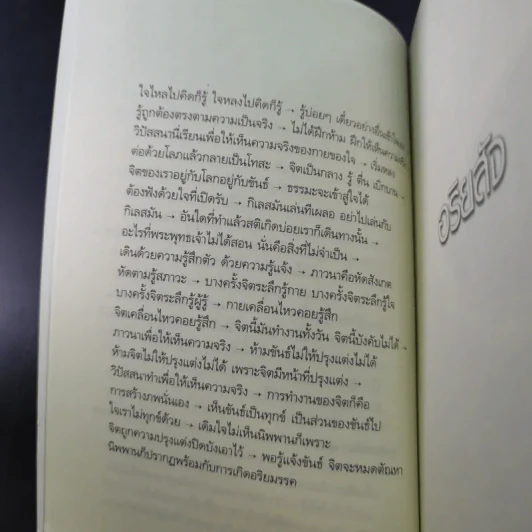 ใจไหลไปคิดก็รู้ ใจหลงไปคิดก็รู้ → รู้บ่อยๆ เดี๋ยวอย่างอื่นก็
รู้ถูกต้องตรงตามความเป็นจริง → ไม่ได้ฝึกห้าม ฝึกให้เห็นความจริง
วิปัสสนานี่เรียนเพื่อให้เห็นความจริงของกายของใจ → เริ่มหลง
ต่อด้วยโลภแล้วกลายเป็นโทสะ → จิตเป็นกลาง รู้ ตื่น เบิกบาน →
จิตของเราอยู่กับโลกอยู่กับขันธ์ → ธรรมะจะเข้าสู่ใจได้
ต้องฟังด้วยใจที่เปิดรับ → กิเลสมันเล่นทีเผลอ อย่าไปเล่นกับ
กิเลสมัน → อันใดที่ทำแล้วสติเกิดบ่อยเราก็เดินทางนั้น →
อะไรที่พระพุทธเจ้าไม่ได้สอน นั่นคือสิ่งที่ไม่จำเป็น →
เดินด้วยความรู้สึกตัว ด้วยความรู้แจ้ง → ภาวนาคือหัดสังเกต
หัดตามรู้สภาวะ → บางครั้งจิตระลึกรู้กาย บางครั้งจิตระลึกรู้ใจ
บางครั้งจิตระลึกรู้ผู้รู้ → กายเคลื่อนไหวคอยรู้สึก
จิตเคลื่อนไหวคอยรู้สึก → จิตนี้มันทำงานทั้งวัน จิตนี้บังคับไม่ได้ →
ภาวนาเพื่อให้เห็นความจริง → ห้ามขันธ์ไม่ให้ปรุงแต่งไม่ได้
ห้ามจิตไม่ให้ปรุงแต่งไม่ได้ เพราะจิตมีหน้าที่ปรุงแต่ง →
วิปัสสนาทำเพื่อให้เห็นความจริง → การทำงานของจิตก็คือ
การสร้างภพนั่นเอง → เห็นขันธ์เป็นทุกข์ เป็นส่วนของขันธ์ไป
ใจเราไม่ทุกข์ด้วย → เดิมใจไม่เห็นนิพพานก็เพราะ
จิตถูกความปรุงแต่งปิดบังเอาไว้ → พอรู้แจ้งขันธ์ จิตจะหมดตัณหา
นิพพานก็ปรากฏพร้อมกับการเกิดอริยมรรค
อริยสัจ